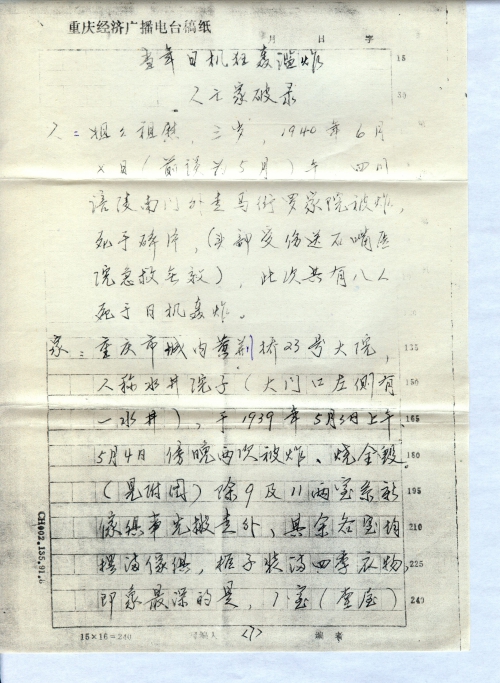 重庆经济广播电台稿纸
月 日 字
当年日机狂轰滥炸 15
人亡家破录 30
人：姐 祖 ，三岁，1940年6月
日（前误为5月）午 四川
涪陵南门外走马街罗家院被炸，
死于碎片，（头部受伤送石 医
院急救无效），此次共有八人
死于日机轰炸。
家：重庆市城内黄荆桥23号大院， 135
人称水井院子（大门口左侧有 150
一水井），于1939年5月3日上午、 165
5月4日傍晚两次被炸、烧全毁 180
（见附图）除9及11两室系新 195
傢俱事先搬走外，其余各室均 210
摆满傢俱，柜子装满四季衣物， 225
印象最深的是，1室（堂屋） 240
CH002.135.91.6
15×16=240 编 人 <1> 编 者